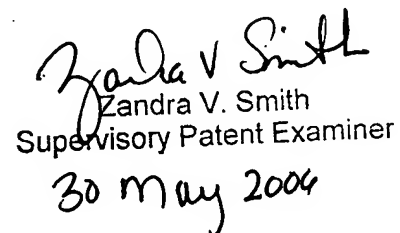 Zandra V Smith
Zandra V. Smith
Supervisory Patent Examiner
30 May 2006